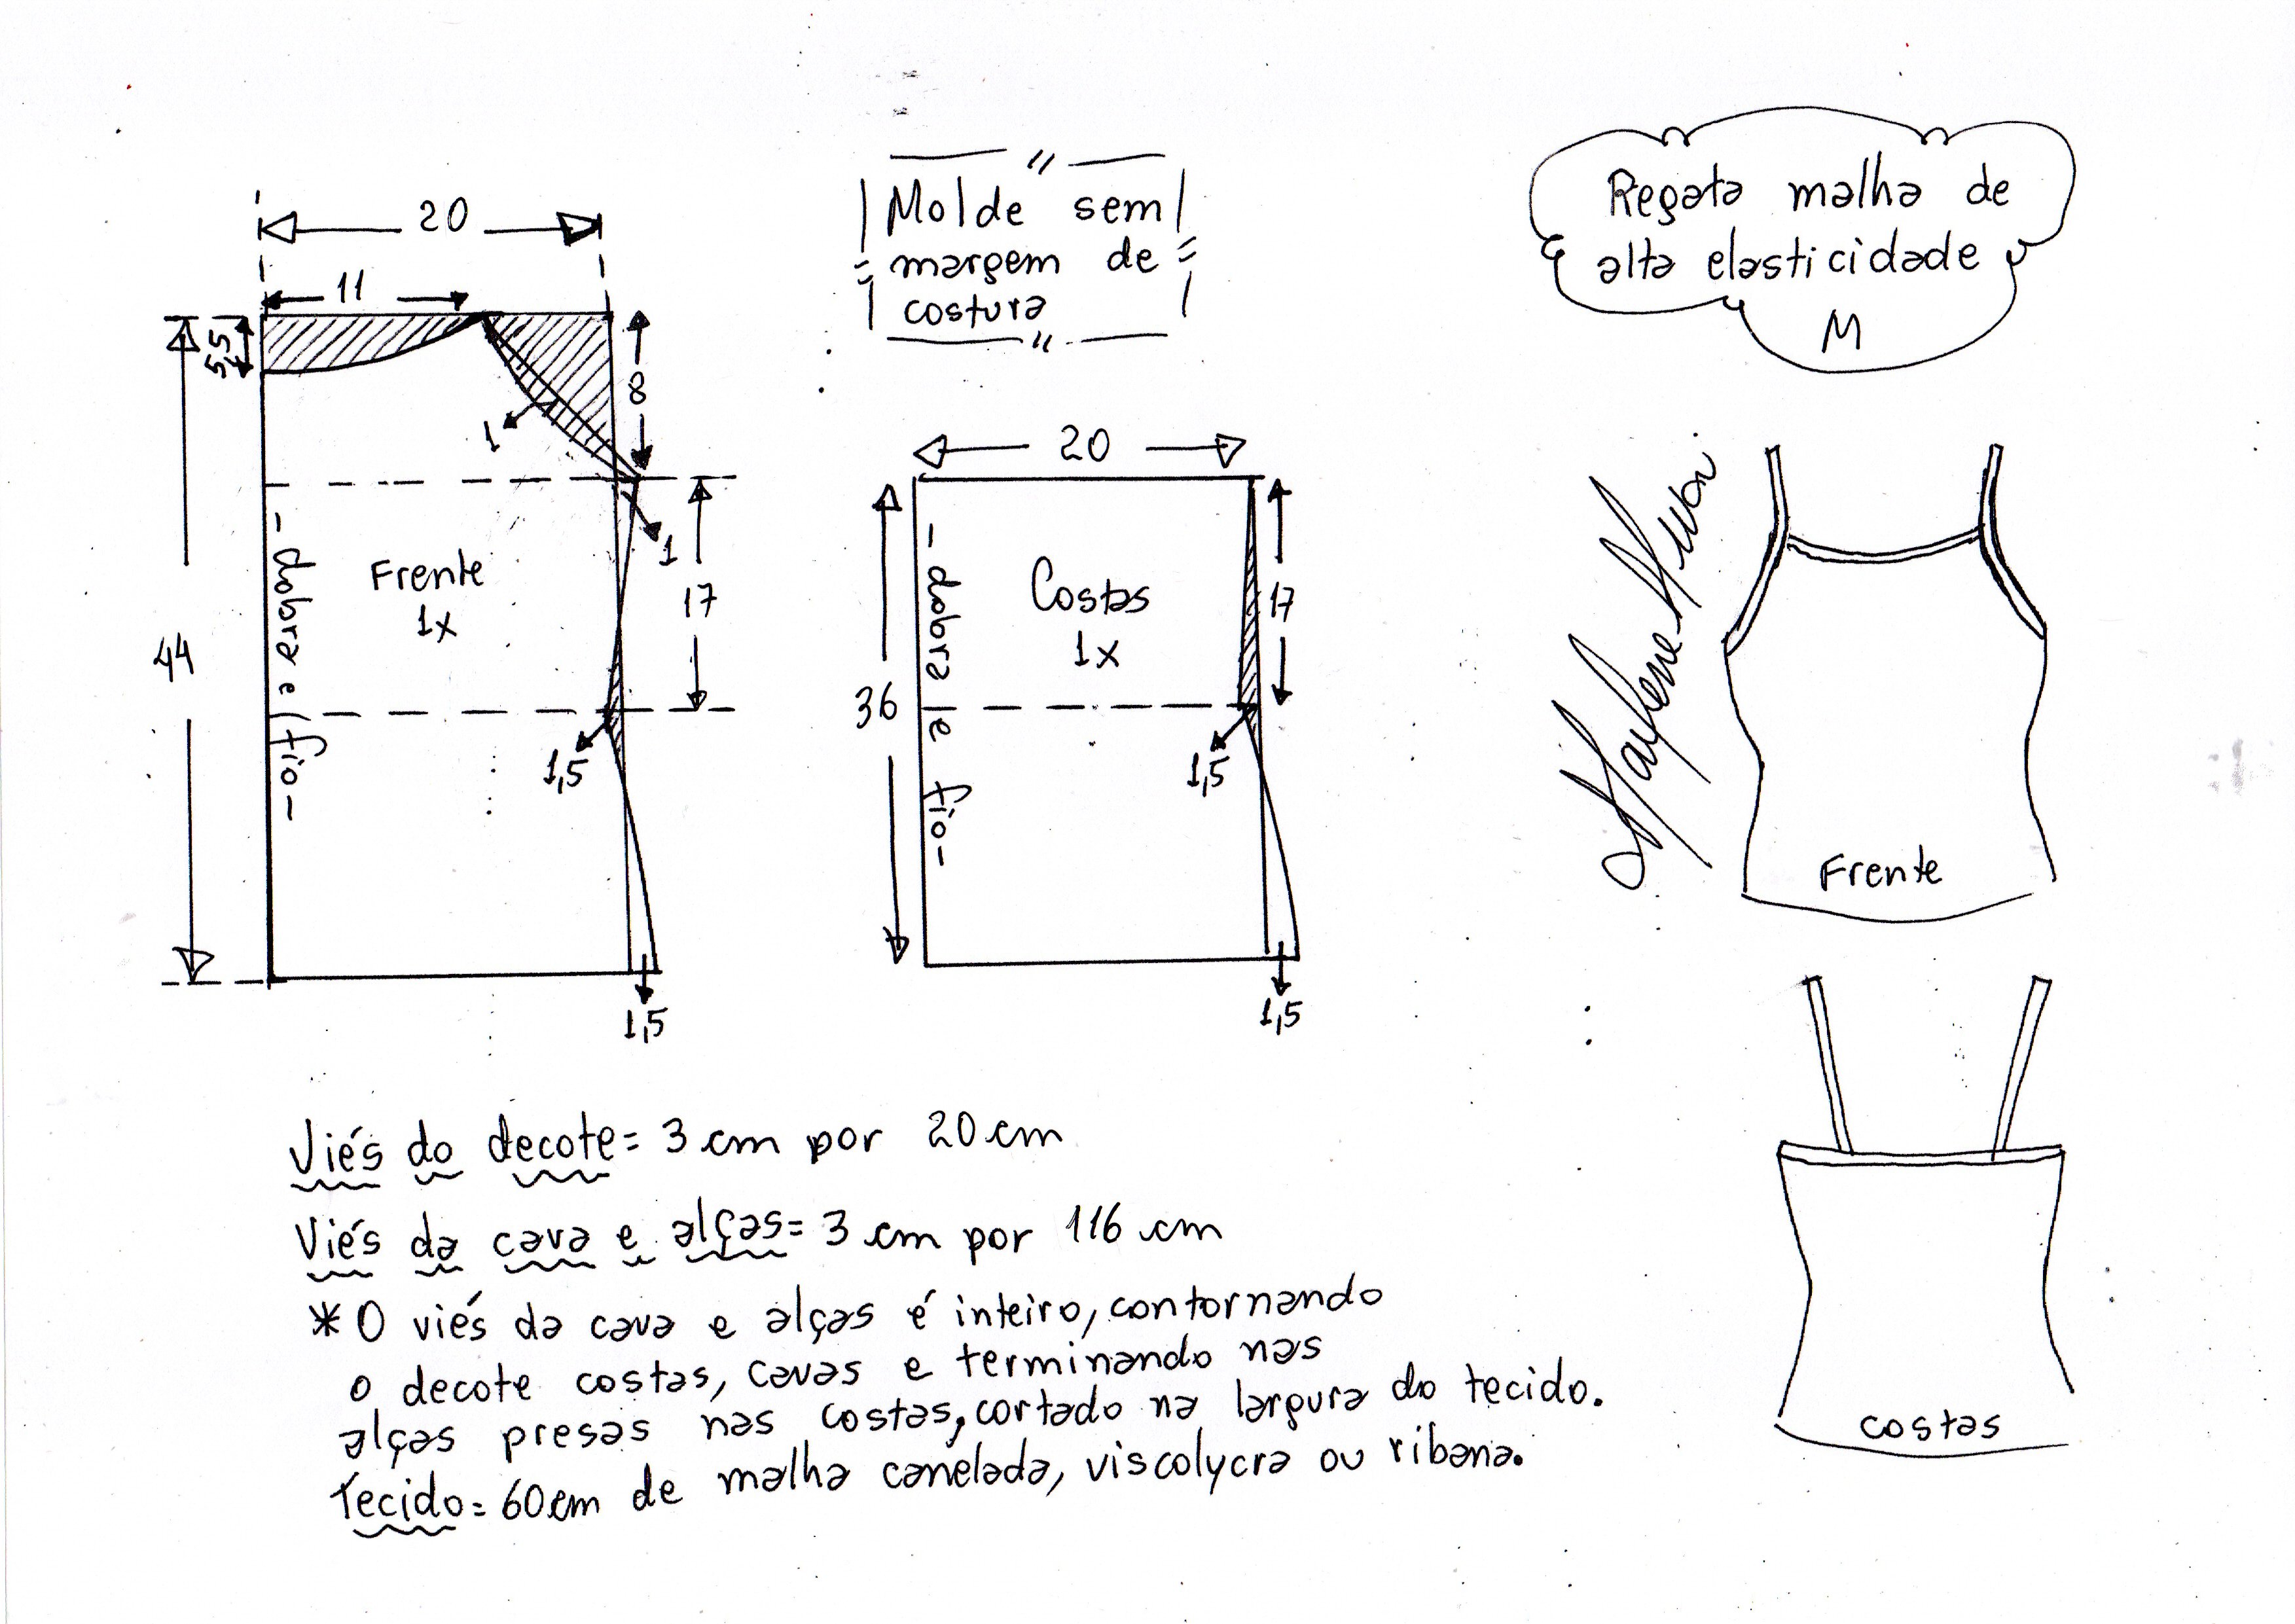 Molde sem
margem de
costura
Regata malha de
alta elasticidade
M
20
11
5,5
8
1
1
17
44
- dobra e fio -
Frente
1x
1,5
1,5
20
36
- dobra e fio -
Costas
1x
17
1,5
1,5
Frente
costas
Viés do decote = 3 cm por 20 cm
Viés da cava e alças = 3 cm por 116 cm
* O viés da cava e alças é inteiro, contornando
o decote costas, cavas e terminando nas
alças presas nas costas, cortado na largura do tecido.
Tecido = 60 cm de malha canelada, viscolycra ou ribana.